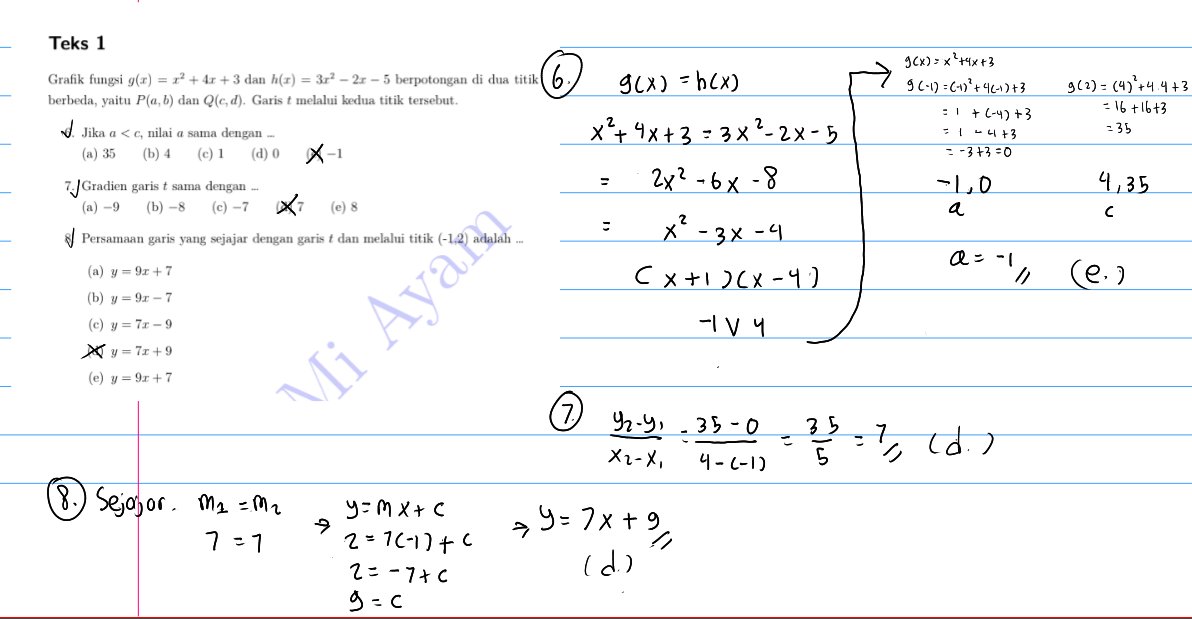 Teks 1
Grafik fungsi g(x) = x² + 4x + 3 dan h(x) = 3x² − 2x − 5 berpotongan di dua titik
berbeda, yaitu P(a, b) dan Q(c, d). Garis t melalui kedua titik tersebut.
Jika a < c, nilai a sama dengan ...
(a) 35 (b) 4 (c) 1 (d) 0 −1
7. Gradien garis t sama dengan ...
(a) −9 (b) −8 (c) −7 7 (e) 8
Persamaan garis yang sejajar dengan garis t dan melalui titik (-1,2) adalah ...
(a) y = 9x + 7
(b) y = 9x − 7
(c) y = 7x − 9
y = 7x + 9
(e) y = 9x + 7
Mi Ayam
6.
g(x) = h(x)
x² + 4x + 3 = 3x² - 2x - 5
= 2x² - 6x - 8
= x² - 3x - 4
(x+1)(x-4)
-1 V 4
g(x) = x² + 4x + 3
g(-1) = (-1)² + 4(-1) + 3
= 1 + (-4) + 3
= 1 - 4 + 3
= -3 + 3 = 0
-1, 0
a
g(2) = (4)² + 4.4 + 3
= 16 + 16 + 3
= 35
4, 35
c
a = -1 (e.)
7.
y₂-y₁ / x₂-x₁ = 35 - 0 / 4 - (-1) = 35 / 5 = 7 (d.)
8. Sejajar. m₁ = m₂
7 = 7
→ y = mx + c
2 = 7(-1) + c
2 = -7 + c
9 = c
→ y = 7x + 9
(d.)